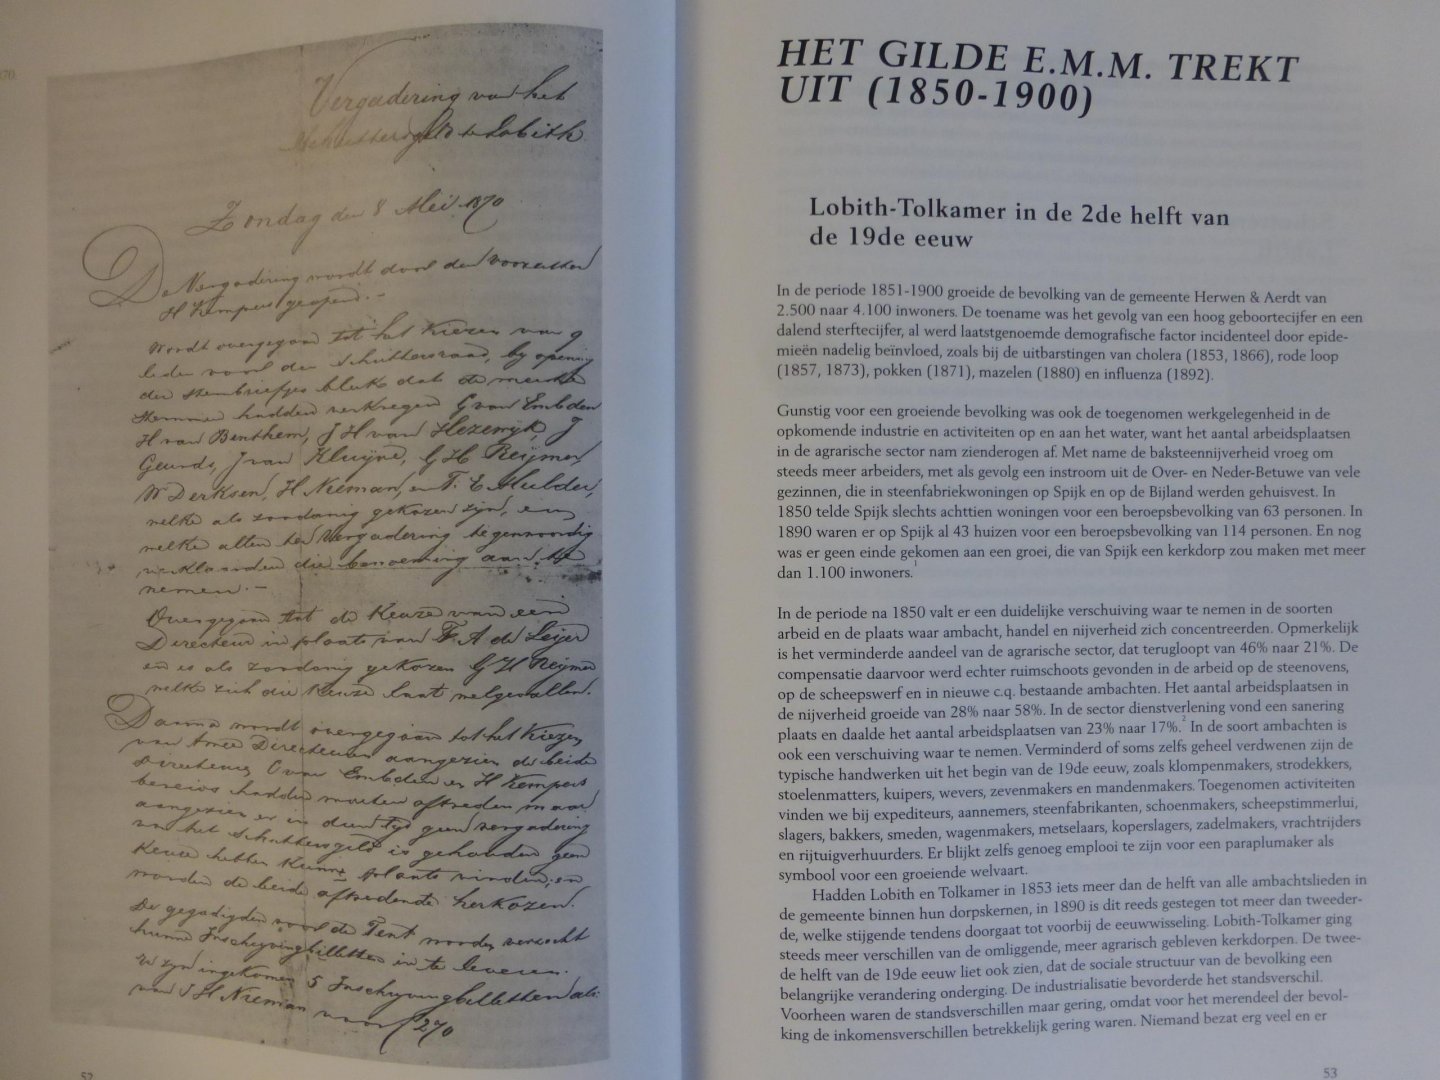 Vergadering van het
Schuttersgild te Lobith
Zondag den 8 Mei 1870
De Vergadering wordt door den voorzitter
H Kempers geopend. -
Wordt overgegaan tot het kiezen van 9
leden voor den Schuttersraad, by opening
der stembriefjes bleek dat de meeste
stemmen hadden verkregen G van Embden
H van Benthem, J H van Hezewijk, J
Geurds, J van Kluijve, G H Reijmer,
W Derksen, H Nieman, en T. E Mulder,
welke als zoodanig gekozen zijn, en
welke allen ter vergadering tegenwoordig
verklaarden die benoeming aan te
nemen. -
Overgegaan tot de Keuze van een
Directeur in plaats van F. A de Leijer
en is als zoodanig gekozen G H Reijmer
welke zich die keuze laat welgevallen.
Daarna wordt overgegaan tot het Kiezen
van twee Directeuren aangezien de beide
Directeuren G van Embden en H Kempers
hadden moeten aftreden maar
aangezien er in dien tyd geen vergadering
van het Schuttersgild is gehouden geen
Keuze hebben kunne plaats vinden, en
worden de beide aftredende herkozen.
De gegadigden voor de Tent worden verzocht
hunne Inschryvingbilletten in te leveren.
Er zyn ingekomen 5 Inschryvingbilletten als:
van J H Nieman voor f 270
52
HET GILDE E.M.M. TREKT
UIT (1850-1900)
Lobith-Tolkamer in de 2de helft van
de 19de eeuw
In de periode 1851-1900 groeide de bevolking van de gemeente Herwen & Aerdt van
2.500 naar 4.100 inwoners. De toename was het gevolg van een hoog geboortecijfer en een
dalend sterftecijfer, al werd laatstgenoemde demografische factor incidenteel door epide-
mieën nadelig beïnvloed, zoals bij de uitbarstingen van cholera (1853, 1866), rode loop
(1857, 1873), pokken (1871), mazelen (1880) en influenza (1892).
Gunstig voor een groeiende bevolking was ook de toegenomen werkgelegenheid in de
opkomende industrie en activiteiten op en aan het water, want het aantal arbeidsplaatsen
in de agrarische sector nam zienderogen af. Met name de baksteennijverheid vroeg om
steeds meer arbeiders, met als gevolg een instroom uit de Over- en Neder-Betuwe van vele
gezinnen, die in steenfabriekwoningen op Spijk en op de Bijland werden gehuisvest. In
1850 telde Spijk slechts achttien woningen voor een beroepsbevolking van 63 personen. In
1890 waren er op Spijk al 43 huizen voor een beroepsbevolking van 114 personen. En nog
was er geen einde gekomen aan een groei, die van Spijk een kerkdorp zou maken met meer
dan 1.100 inwoners.1
In de periode na 1850 valt er een duidelijke verschuiving waar te nemen in de soorten
arbeid en de plaats waar ambacht, handel en nijverheid zich concentreerden. Opmerkelijk
is het verminderde aandeel van de agrarische sector, dat terugloopt van 46% naar 21%. De
compensatie daarvoor werd echter ruimschoots gevonden in de arbeid op de steenovens,
op de scheepswerf en in nieuwe c.q. bestaande ambachten. Het aantal arbeidsplaatsen in
de nijverheid groeide van 28% naar 58%. In de sector dienstverlening vond een sanering
plaats en daalde het aantal arbeidsplaatsen van 23% naar 17%.2 In de soort ambachten is
ook een verschuiving waar te nemen. Verminderd of soms zelfs geheel verdwenen zijn de
typische handwerken uit het begin van de 19de eeuw, zoals klompenmakers, strodekkers,
stoelenmatters, kuipers, wevers, zevenmakers en mandenmakers. Toegenomen activiteiten
vinden we bij expediteurs, aannemers, steenfabrikanten, schoenmakers, scheepstimmerlui,
slagers, bakkers, smeden, wagenmakers, metselaars, koperslagers, zadelmakers, vrachtrijders
en rijtuigverhuurders. Er blijkt zelfs genoeg emplooi te zijn voor een paraplumaker als
symbool voor een groeiende welvaart.
Hadden Lobith en Tolkamer in 1853 iets meer dan de helft van alle ambachtslieden in
de gemeente binnen hun dorpskernen, in 1890 is dit reeds gestegen tot meer dan tweeder-
de, welke stijgende tendens doorgaat tot voorbij de eeuwwisseling. Lobith-Tolkamer ging
steeds meer verschillen van de omliggende, meer agrarisch gebleven kerkdorpen. De twee-
de helft van de 19de eeuw liet ook zien, dat de sociale structuur van de bevolking een
belangrijke verandering onderging. De industrialisatie bevorderde het standsverschil.
Voorheen waren de standsverschillen maar gering, omdat voor het merendeel der bevol-
king de inkomensverschillen betrekkelijk gering waren. Niemand bezat erg veel en er
53